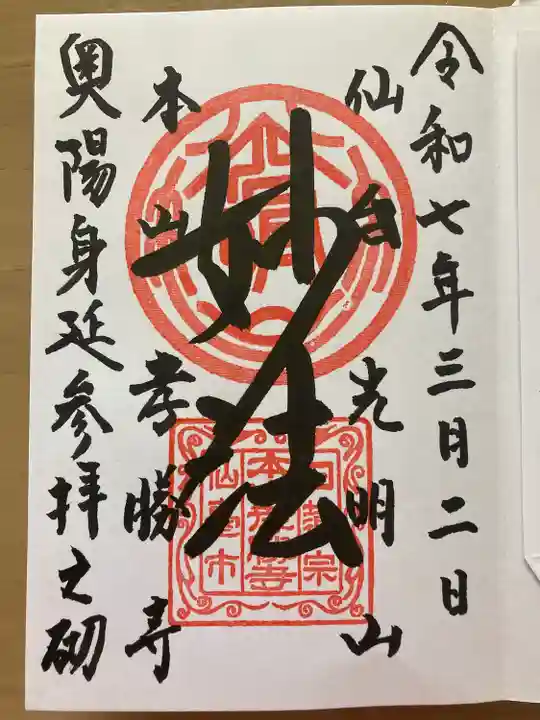 令和七年三月二日
仙台光明山
妙法
本山孝勝寺
奥陽身延参拝之砌
日蓮宗
本山孝勝寺
仙臺市